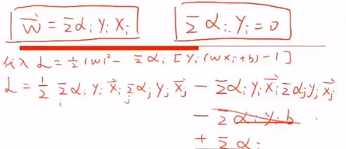 w⃗ = Σαᵢyᵢxᵢ Σαᵢyᵢ=0
代入 L = ½|w|² - Σαᵢ[yᵢ(wxᵢ+b)-1]
L = ½ Σᵢαᵢyᵢx⃗ᵢ Σⱼαⱼyⱼx⃗ⱼ - Σαᵢyᵢx⃗ᵢ Σαⱼyⱼx⃗ⱼ
- Σαᵢyᵢb
+ Σαᵢ